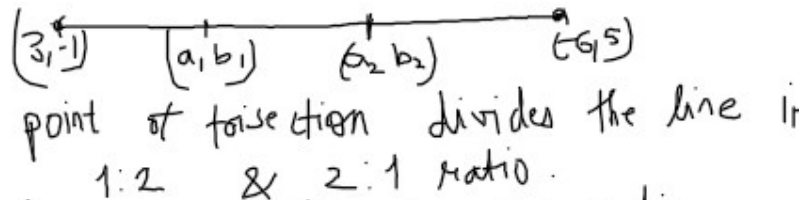 (3,-1) (a, b₁) (a₂ b₂) (-6,5)
point of trisection divides the line in
1:2 & 2:1 ratio.